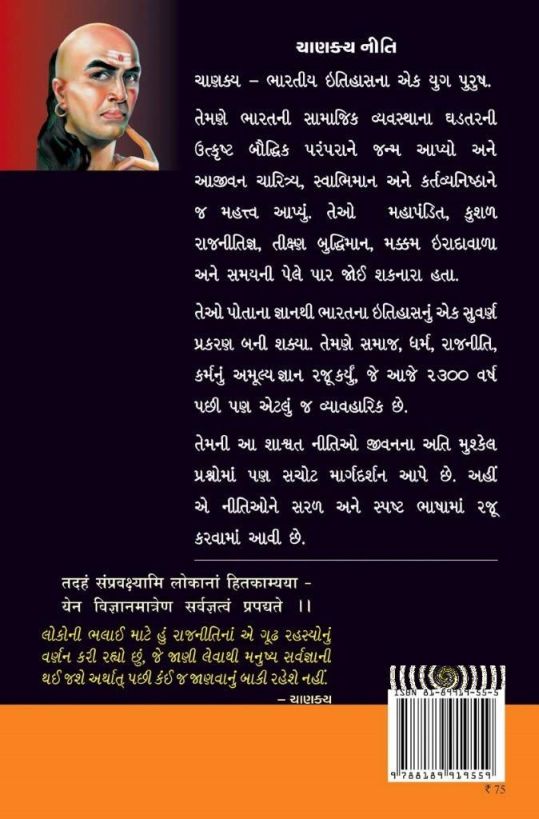 ચાણક્ય નીતિ
ચાણક્ય – ભારતીય ઇતિહાસના એક યુગ પુરુષ.
તેમણે ભારતની સામાજિક વ્યવસ્થાના ઘડતરની
ઉત્કૃષ્ટ બૌદ્ધિક પરંપરાને જન્મ આપ્યો અને
આજીવન ચારિત્ર્ય, સ્વાભિમાન અને કર્તવ્યનિષ્ઠાને
જ મહત્ત્વ આપ્યું. તેઓ મહાપંડિત, કુશળ
રાજનીતિજ્ઞ, તીક્ષ્ણ બુદ્ધિમાન, મક્કમ ઇરાદાવાળા
અને સમયની પેલે પાર જોઈ શકનારા હતા.
તેઓ પોતાના જ્ઞાનથી ભારતના ઇતિહાસનું એક સુવર્ણ
પ્રકરણ બની શક્યા. તેમણે સમાજ, ધર્મ, રાજનીતિ,
કર્મનું અમૂલ્ય જ્ઞાન રજૂ કર્યું, જે આજે ૨૩૦૦ વર્ષ
પછી પણ એટલું જ વ્યાવહારિક છે.
તેમની આ શાશ્વત નીતિઓ જીવનના અતિ મુશ્કેલ
પ્રશ્નોમાં પણ સચોટ માર્ગદર્શન આપે છે. અહીં
એ નીતિઓને સરળ અને સ્પષ્ટ ભાષામાં રજૂ
કરવામાં આવી છે.
तदहं संप्रवक्ष्यामि लोकानां हितकाम्यया -
येन विज्ञानमात्रेण सर्वज्ञत्वं प्रपद्यते ।।
લોકોની ભલાઈ માટે હું રાજનીતિનાં એ ગૂઢ રહસ્યોનું
વર્ણન કરી રહ્યો છું, જે જાણી લેવાથી મનુષ્ય સર્વજ્ઞાની
થઈ જશે અર્થાત્ પછી કંઈ જ જાણવાનું બાકી રહેશે નહીં.
– ચાણક્ય
ISBN 81-89919-55-5
9 788189 919559
₹ 75